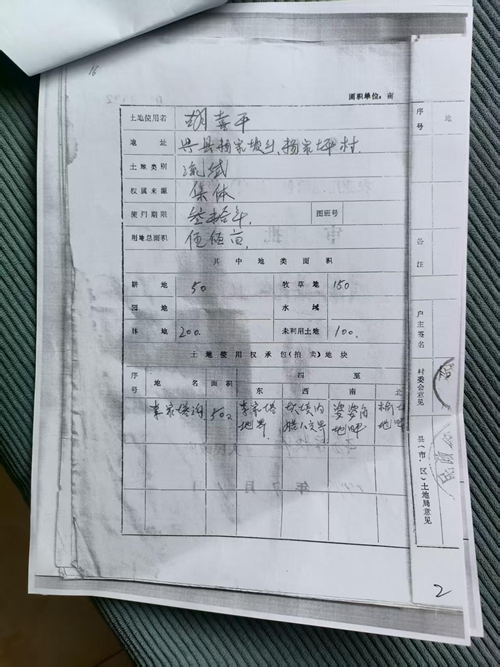 面积单位：亩
土地使用者 胡喜平
地址 兴县杨家坡乡杨家坪村
土地类别 流域
权属来源 集体
使用期限 图班号
用地总面积 伍佰亩
其中地类面积
耕地 50 牧草地 150
园地 水域
林地 200. 未利用土地 100.
土地使用权承包(拍卖)地块
序号 地名 面积 四至
东 西 南 北
李家塔沟 500 李家塔地界
地畔
序号 地
备注
户主签名
村委会意见
县(市、区)土地局意见
年 月
2